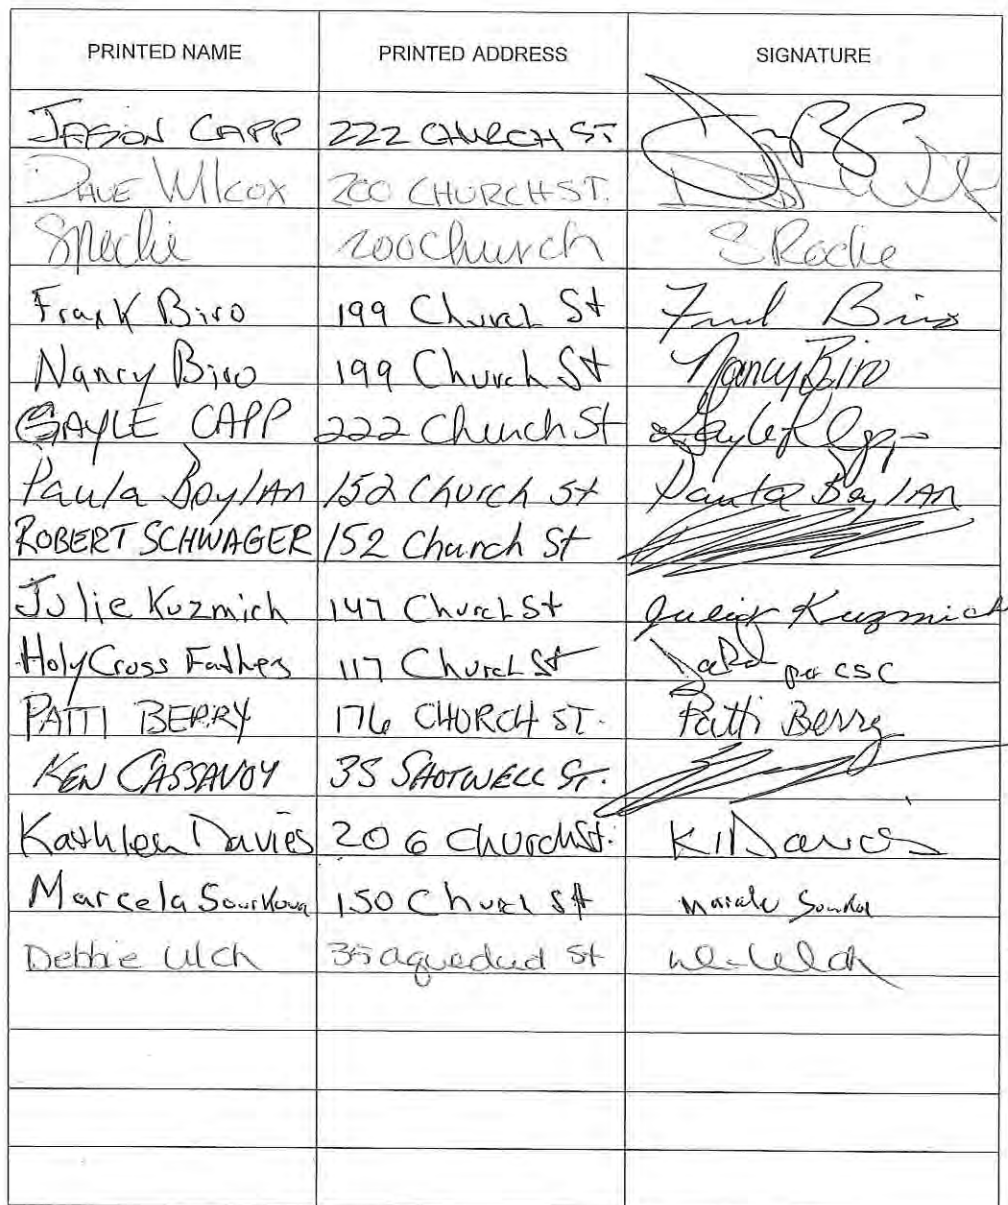 PRINTED NAME PRINTED ADDRESS SIGNATURE
JASON CAPP 222 CHURCH ST
DAVE WILCOX 200 CHURCH ST.
200 Church S Roche
Frank Biro 199 Church St Frank Biro
Nancy Biro 199 Church St Nancy Biro
GAYLE CAPP 222 Church St
Paula Boylan 152 Church St Paula Boylan
ROBERT SCHWAGER 152 Church St
Julie Kuzmich 147 Church St Julie Kuzmich
Holy Cross Fathers 117 Church St per CSC
PATTI BERRY 176 CHURCH ST. Patti Berry
KEN CASSAVOY 35 SHOTWELL ST.
Kathleen Davies 206 Church St. K Davies
Marcela Sourkova 150 Church St
Debbie Ulch 35 aqueduct St